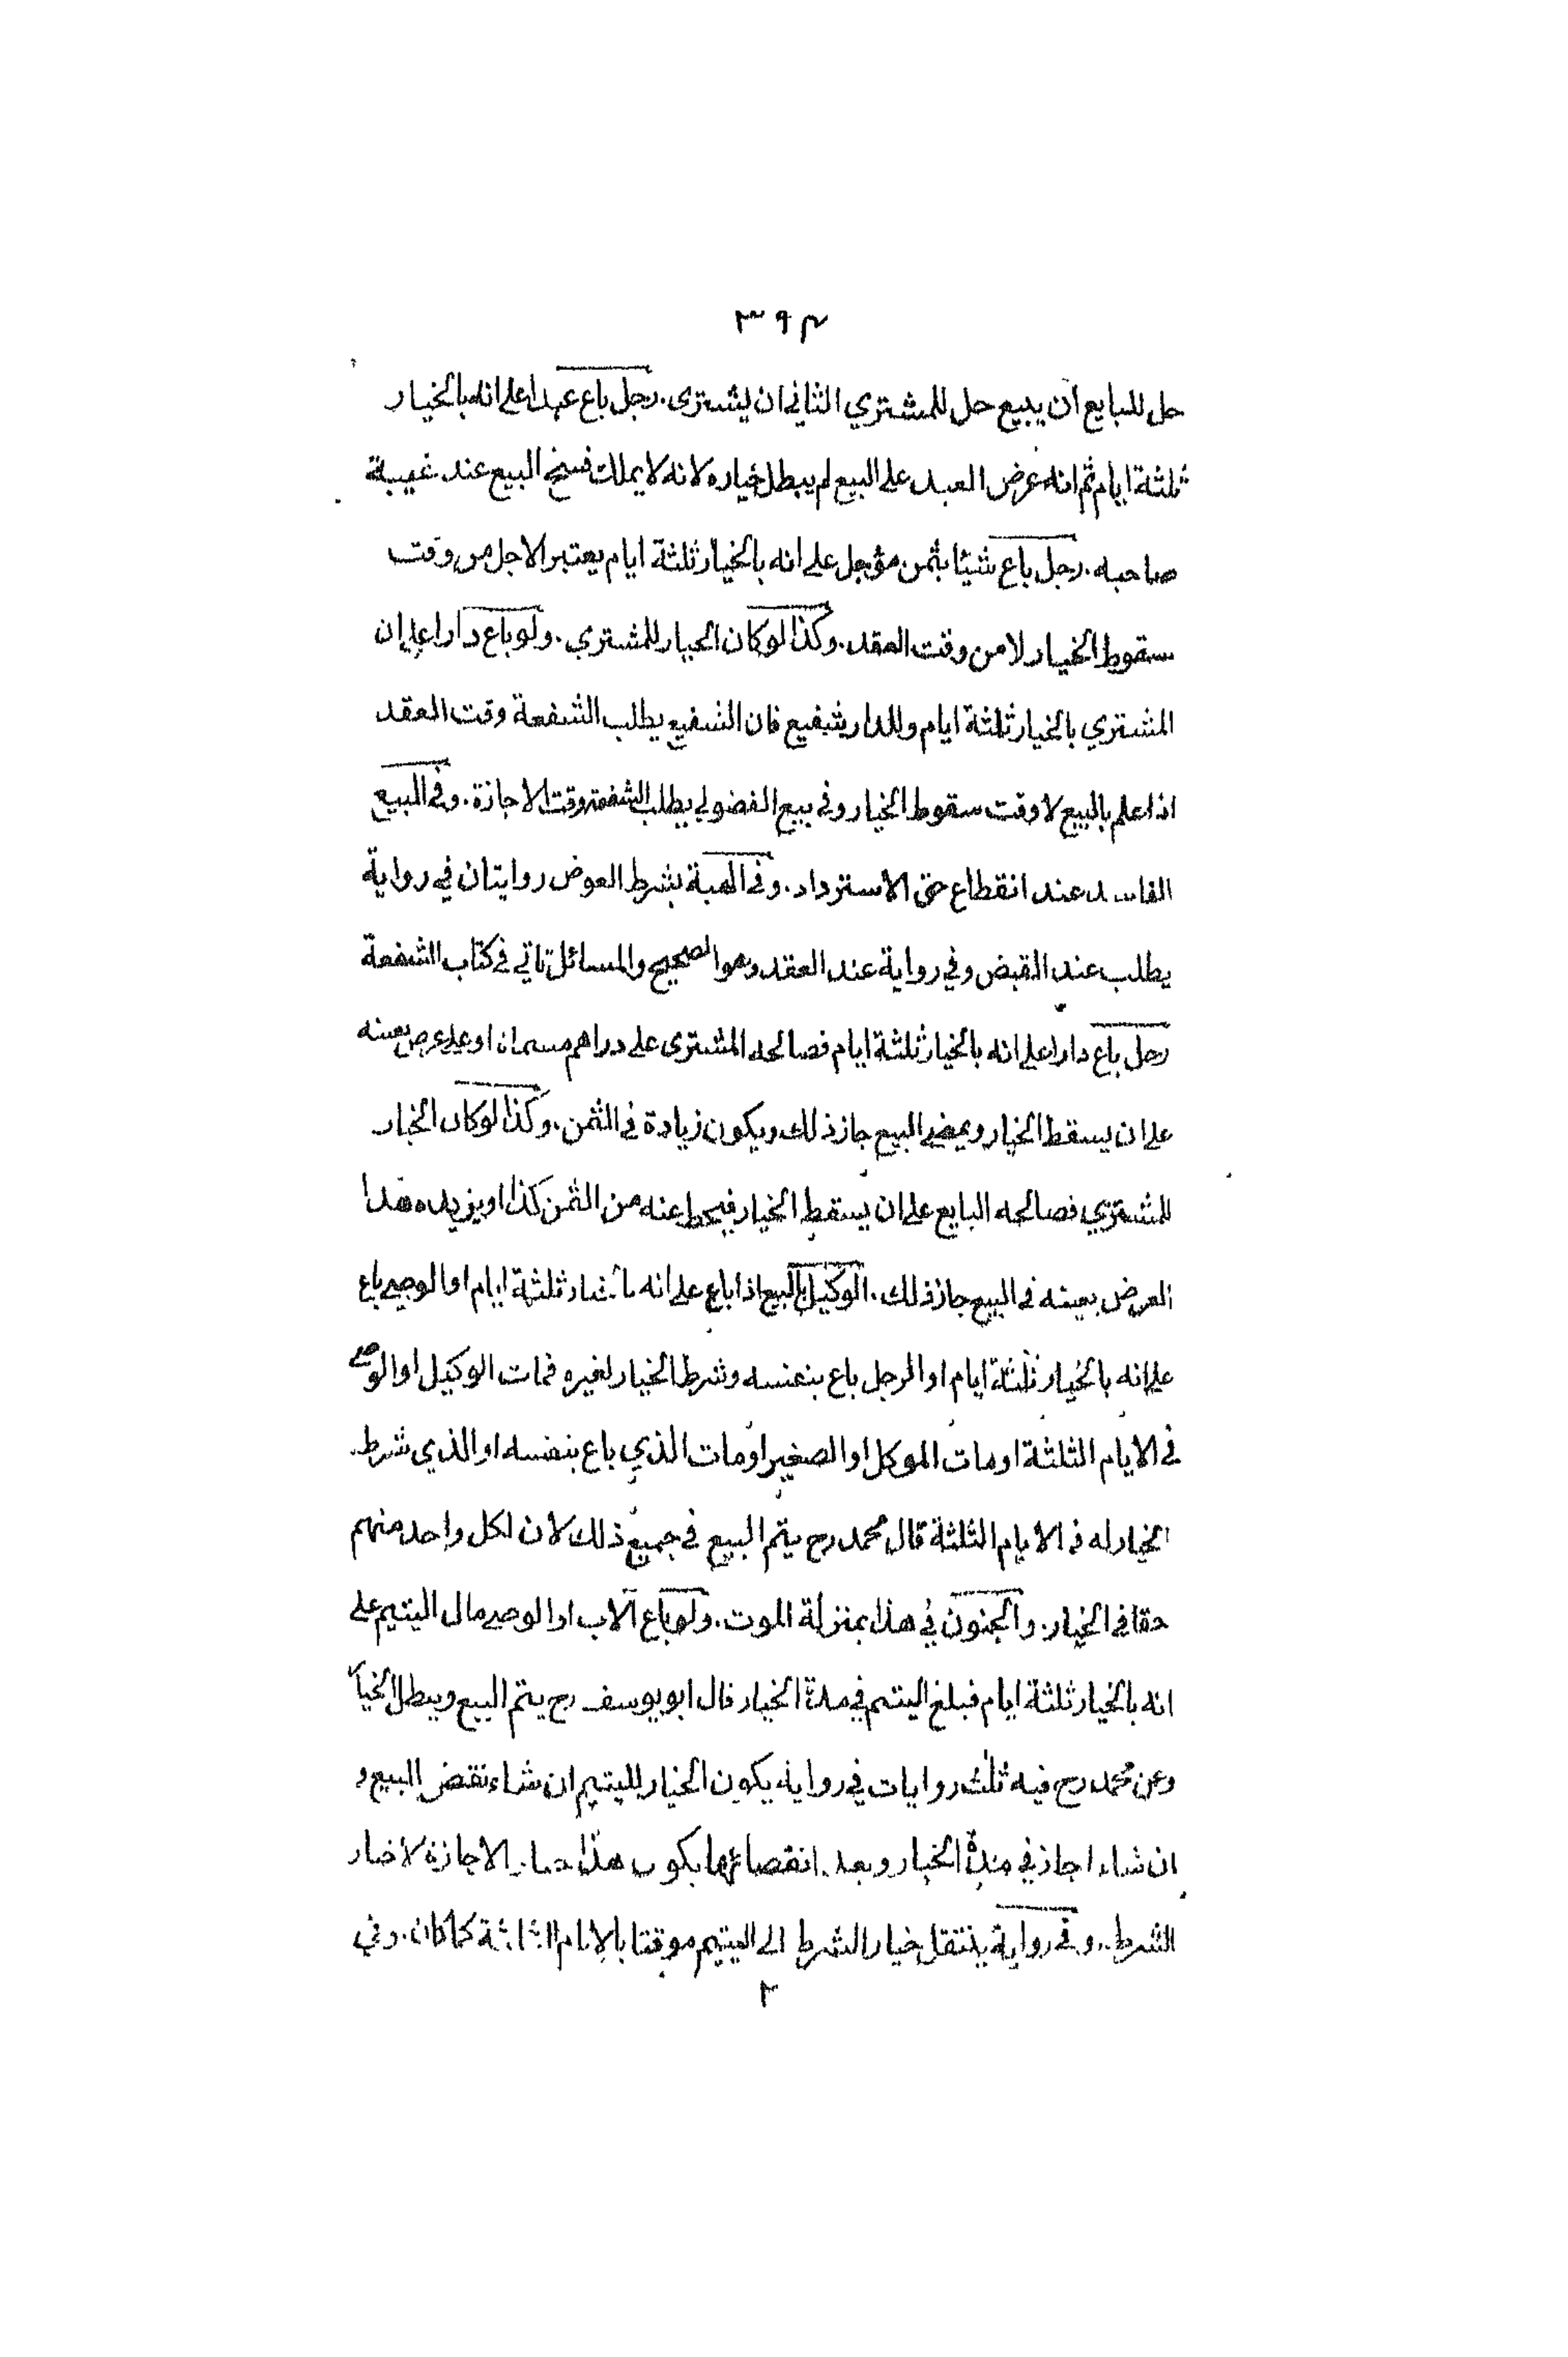 ٣٩٤
حل للبايع ان يبيع حل للمشتري الثاني ان يشترى. رجل باع عبدا على انه بالخيار
ثلثة ايام ثم انه عرض العبد على البيع لم يبطل خياره لانه لا يملك فسخ البيع عند غيبة
صاحبه. رجل باع شيئا بثمن مؤجل على انه بالخيار ثلثة ايام يعتبر الاجل من وقت
سقوط الخيار لا من وقت العقد. وكذا لو كان الخيار للمشتري. ولو باع دارا على ان
المشتري بالخيار ثلثة ايام وللدار شفيع فان الشفيع يطلب الشفعة وقت العقد
اذا علم بالبيع لا وقت سقوط الخيار وفى بيع الفضولي يطلب الشفعة وقت الاجازة. وفى البيع
الفاسد عند انقطاع حق الاسترداد. وفى الهبة بشرط العوض روايتان في رواية
يطلب عند القبض وفي رواية عند العقد وهو الصحيح والمسائل تاتي في كتاب الشفعة
رجل باع دارا على انه بالخيار ثلثة ايام فصالحه المشترى على دراهم مسماة او على عرض بعينه
على ان يسقط الخيار ويمضي البيع جاز ذلك ويكون زيادة في الثمن. وكذا لو كان الخيار
للمشتري فصالحه البايع على ان يسقط الخيار فيحط عنه من الثمن كذا او يزيده هذا
العرض بعينه في البيع جاز ذلك. الوكيل بالبيع اذا باع على انه بالخيار ثلثة ايام او الوصي باع
على انه بالخيار ثلثة ايام او الرجل باع بنفسه وشرط الخيار لغيره فمات الوكيل او الوصي
في الايام الثلثة او مات الموكل او الصغير او مات الذي باع بنفسه او الذي شرط
الخيار له في الايام الثلثة قال محمد رح يتم البيع في جميع ذلك لان لكل واحد منهم
حقا في الخيار. والجنون في هذا بمنزلة الموت. ولو باع الاب او الوصي مال اليتيم على
انه بالخيار ثلثة ايام فبلغ اليتيم في مدة الخيار قال ابو يوسف رح يتم البيع ويبطل الخيار
وعن محمد رح فيه ثلث روايات في رواية يكون الخيار لليتيم ان شاء نقض البيع و
ان شاء اجاز في مدة الخيار وبعد انقضائها يكون هذا خيار الاجازة لا خيار
الشرط. وفي رواية ينتقل خيار الشرط الى اليتيم موقتا بالايام الثلثة كما كان. وفي
٢